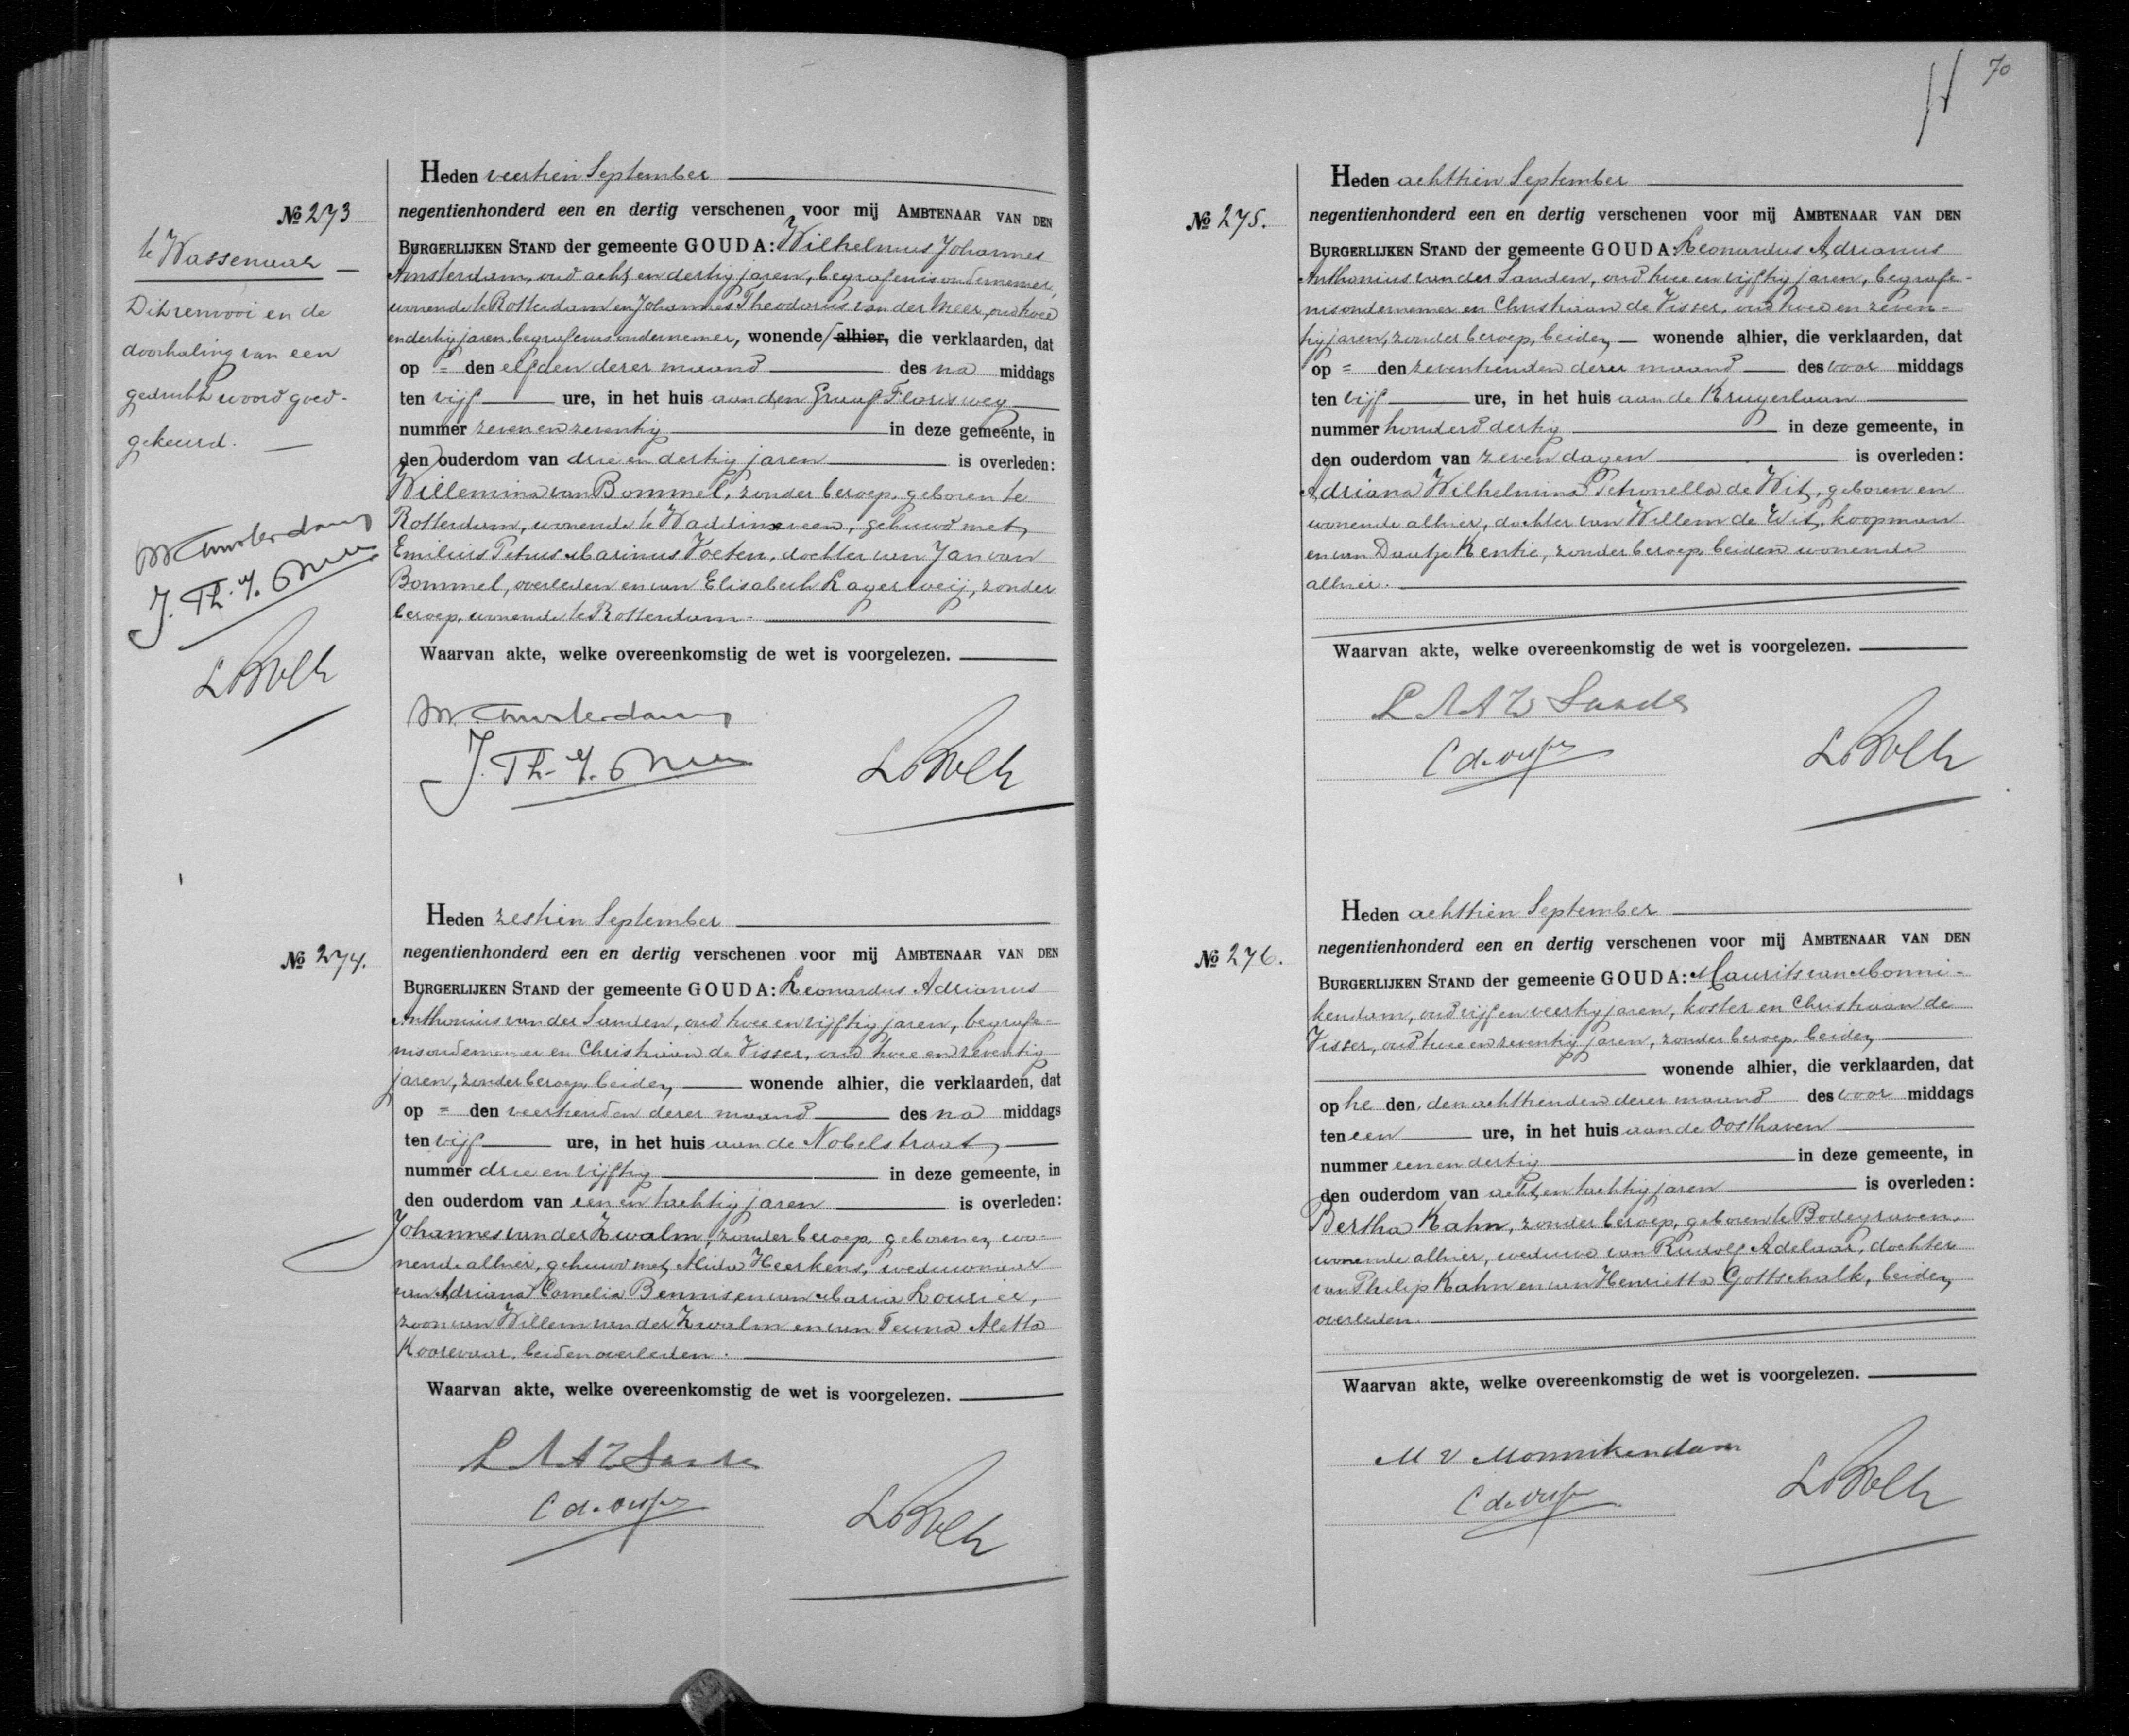 Heden veertien September
No 273
negentienhonderd een en dertig verschenen voor mij AMBTENAAR VAN DEN
BURGERLIJKEN STAND der gemeente GOUDA: Wilhelmus Johannes
Amsterdam, oud acht en dertig jaren, begrafenisondernemer,
wonende te Rotterdam en Johannes Theodorus van der Meer, oud twee
en dertig jaren, begrafenisondernemer, wonende / alhier, die verklaarden, dat
op = den elfden dezer maand des na middags
ten vijf ure, in het huis aan den Graaf Florisweg
nummer zeven en zeventig in deze gemeente, in
den ouderdom van drie en dertig jaren is overleden:
Willemina van Bommel, zonder beroep, geboren te
Rotterdam, wonende te Waddinxveen, gehuwd met
Emilius Petrus Marinus Voeten, dochter van Jan van
Bommel, overleden en van Elisabeth Lagerweij, zonder
beroep, wonende te Rotterdam.
Waarvan akte, welke overeenkomstig de wet is voorgelezen.
W Amsterdam
J. Th. v. d Meer
te Wassenaar
Dit renvooi en de
doorhaling van een
gedrukt woord goed-
gekeurd.
W Amsterdam
J. Th. v. d Meer
Heden zestien September
No 274.
negentienhonderd een en dertig verschenen voor mij AMBTENAAR VAN DEN
BURGERLIJKEN STAND der gemeente GOUDA: Leonardus Adrianus
Anthonius van der Sanden, oud twee en vijftig jaren, begrafe-
nisondernemer en Christiaan de Visser, oud twee en zeventig
jaren, zonder beroep, beiden wonende alhier, die verklaarden, dat
op = den veertienden dezer maand des na middags
ten vijf ure, in het huis aan de Nobelstraat
nummer drie en vijftig in deze gemeente, in
den ouderdom van een en tachtig jaren is overleden:
Johannes van der Zwalm, zonder beroep, geboren en wo-
nende alhier, gehuwd met Alida Heerkens, weduwnaar
van Adriana Cornelia Bennis en van Maria Lourier,
zoon van Willem van der Zwalm en van Teuna Aletta
Koorevaar, beiden overleden.
Waarvan akte, welke overeenkomstig de wet is voorgelezen.
L A A v Sande
C de Visser
70
Heden achttien September
No 275.
negentienhonderd een en dertig verschenen voor mij AMBTENAAR VAN DEN
BURGERLIJKEN STAND der gemeente GOUDA: Leonardus Adrianus
Anthonius van der Sanden, oud twee en vijftig jaren, begrafe-
nisondernemer en Christiaan de Visser, oud twee en zeven-
tig jaren, zonder beroep, beiden wonende alhier, die verklaarden, dat
op = den zeventienden dezer maand des voor middags
ten vijf ure, in het huis aan de Krugerlaan
nummer honderd dertig in deze gemeente, in
den ouderdom van zeven dagen is overleden:
Adriana Wilhelmina Petronella de Wit, geboren en
wonende alhier, dochter van Willem de Wit, koopman
en van Daatje Kentie, zonder beroep, beiden wonende
alhier.
Waarvan akte, welke overeenkomstig de wet is voorgelezen.
L A A v Sande
C de Visser
Heden achttien September
No 276.
negentienhonderd een en dertig verschenen voor mij AMBTENAAR VAN DEN
BURGERLIJKEN STAND der gemeente GOUDA: Maurits van Monni-
kendam, oud vijf en veertig jaren, koster en Christiaan de
Visser, oud twee en zeventig jaren, zonder beroep, beiden
wonende alhier, die verklaarden, dat
op he den, den achttienden dezer maand des voor middags
ten een ure, in het huis aan de Oosthaven
nummer een en dertig in deze gemeente, in
den ouderdom van acht en tachtig jaren is overleden:
Bertha Kahn, zonder beroep, geboren te Bodegraven,
wonende alhier, weduwe van Rudolf Adelaar, dochter
van Philip Kahn en van Henrietta Gottschalk, beiden
overleden.
Waarvan akte, welke overeenkomstig de wet is voorgelezen.
M v Monnikendam
C de Visser